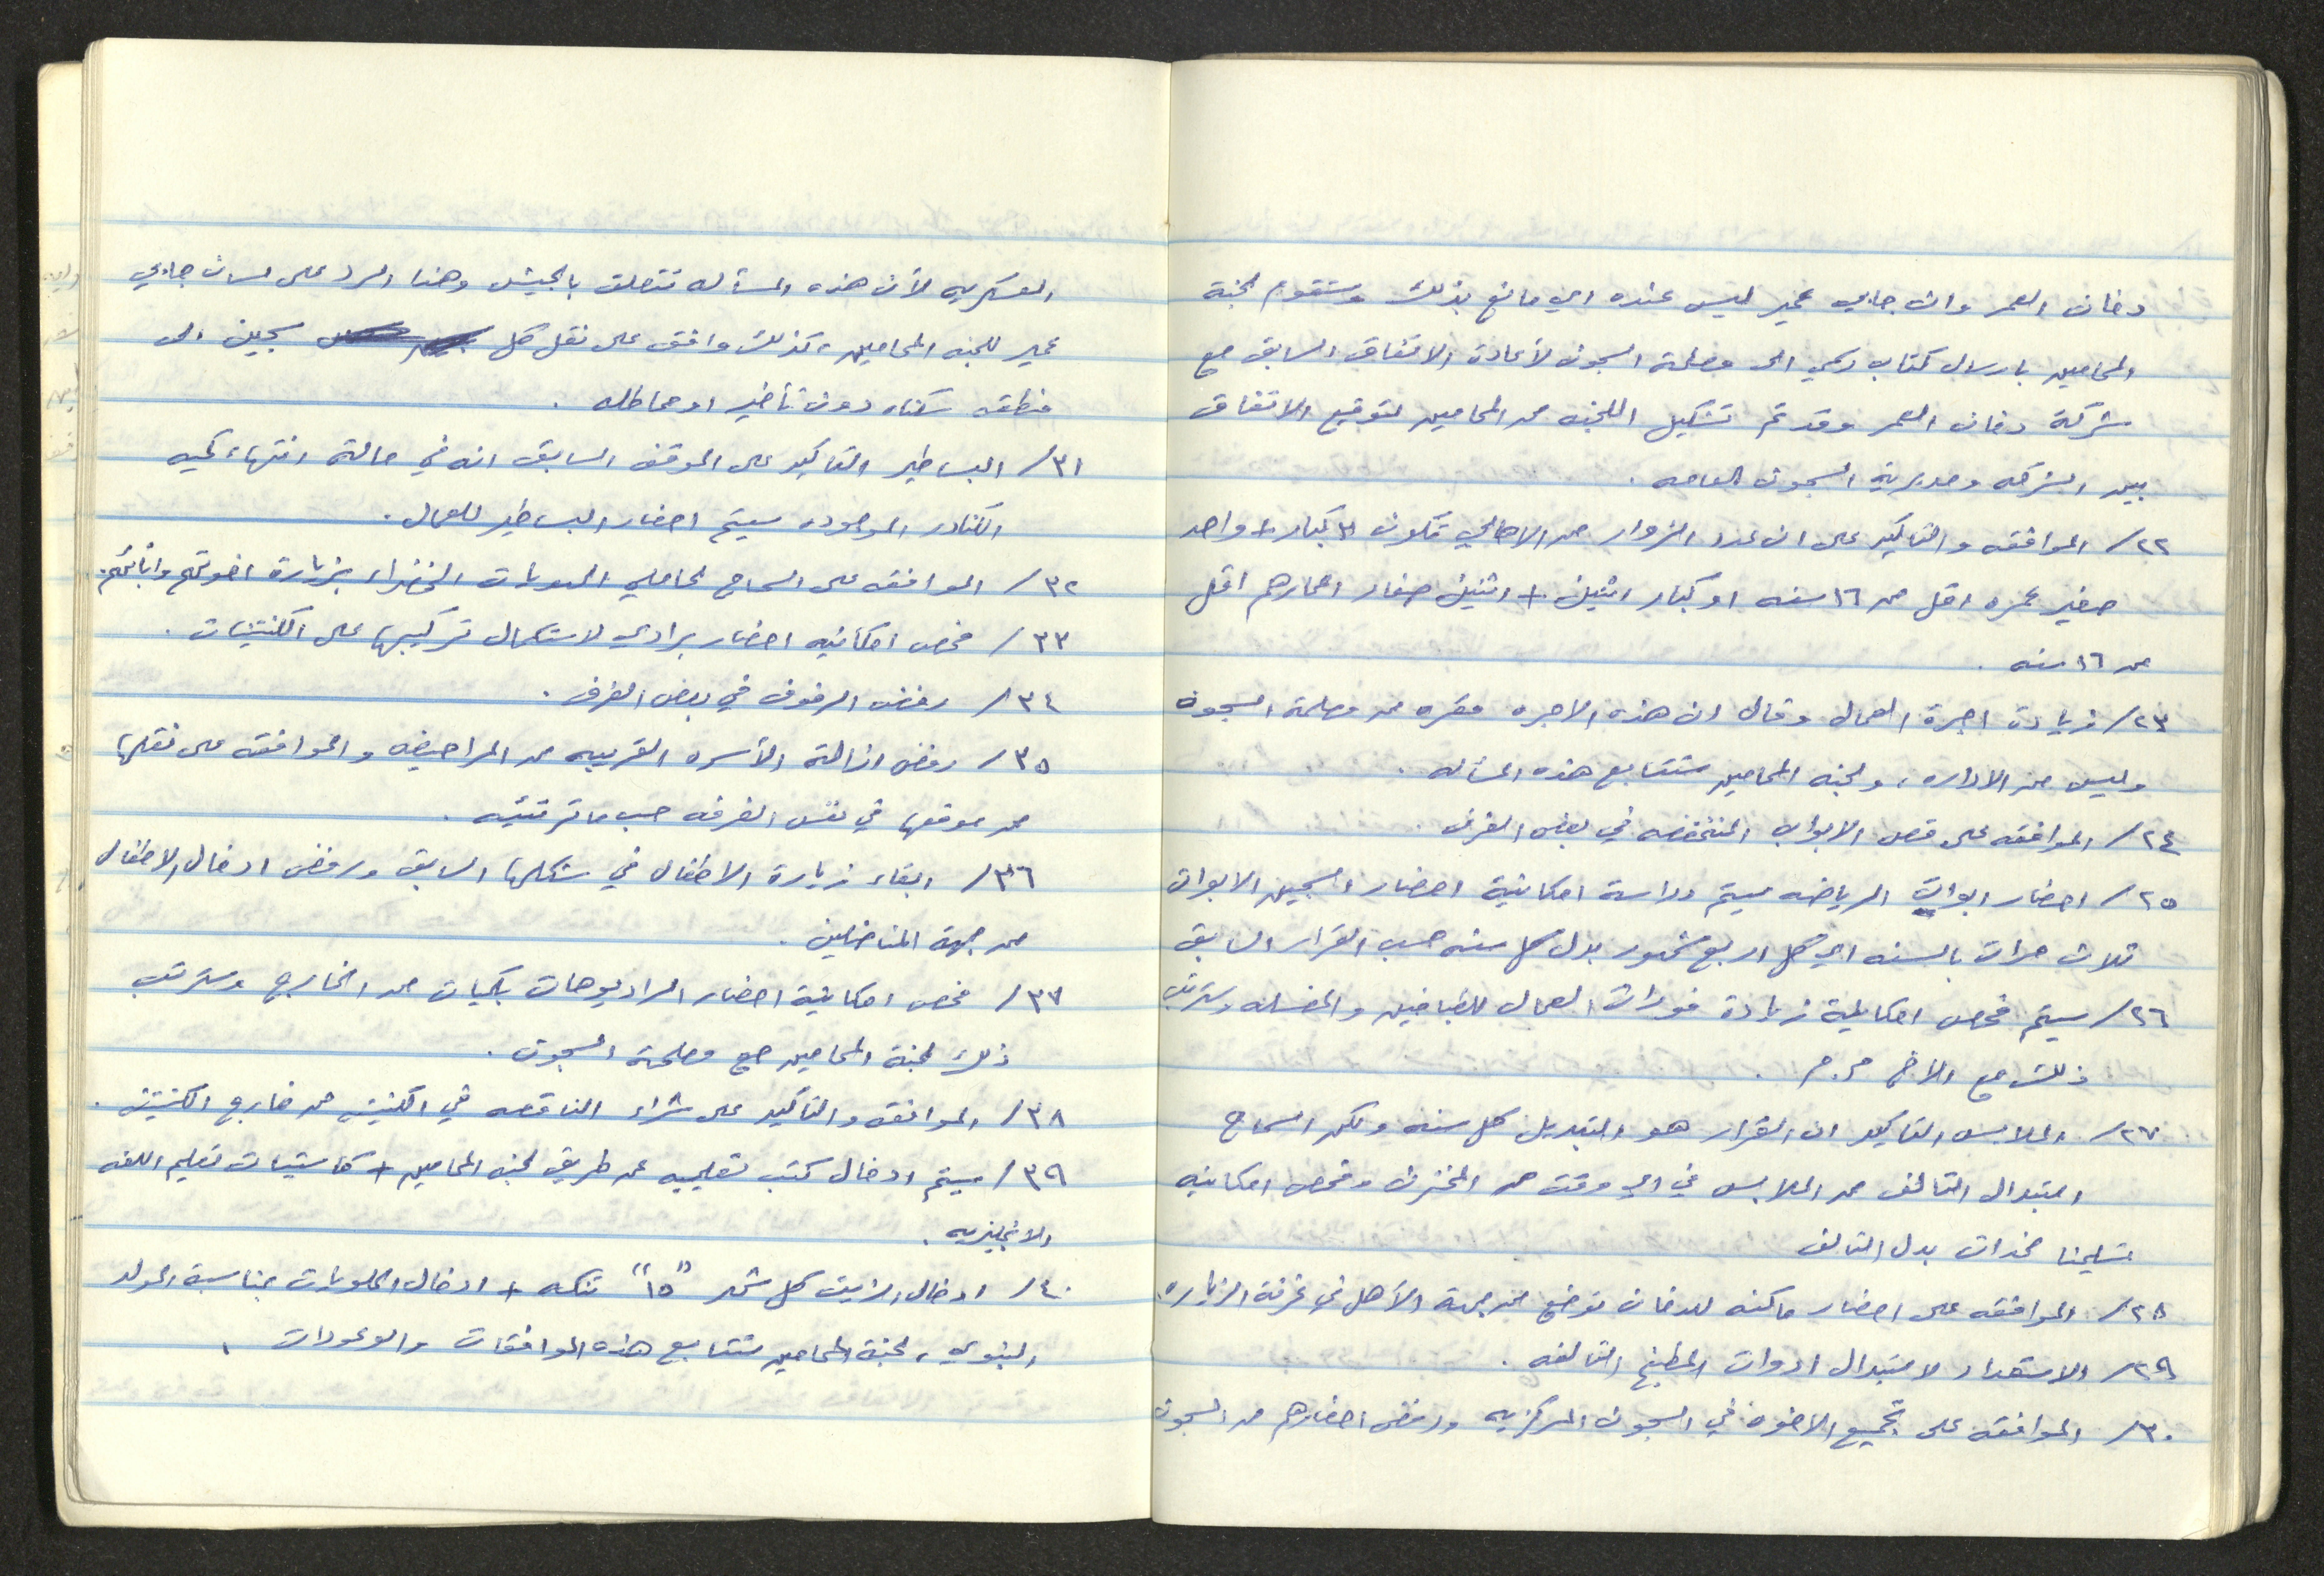 دخان العمر وان جابي عمير ليس عنده اي مانع بذلك وستقوم لجنة
المحامين بارسال كتاب رسمي الى مصلحة السجون لأعادة الاتفاق السابق مع
شركة دخان العمر وقد تم تشكيل اللجنه من المحامين لتوقيع الاتفاق
بين الشركه ومديرية السجون العامه .
٢٢/ الموافقه والتأكيد على ان عدد الزوار من الاهالي تكون ٣ كبار + واحد
صغير عمره اقل من ١٦ سنه او كبار اثنين + اثنين صغار اعمارهم اقل
من ١٦ سنه .
٢٣/ زيادة اجرة العمال وقال ان هذه الاجره مقره من مصلحة السجون
وليس من الاداره ، ولجنه المحامين ستتابع هذه المسأله .
٢٤/ الموافقه على قص الابواب المنخفضه في بعض الغرف .
٢٥/ احضار ابوات الرياضه سيتم دراسة امكانية احضار السجين الابوات
ثلاث مرات بالسنه اي كل اربع شهور بدل كل سنه حسب القرار السابق
٢٦/ سيتم فحص امكانية زيادة فورات العمال للطباخين والمغسله وسترتب
ذلك مع الأخ م.م .
٢٧/ الملابس التأكيد ان القرار هو التبديل كل سنه ولكن السماح
استبدال التالف من الملابس في اي وقت من المخزن وفحص امكانيه
تسليمنا مخدات بدل التالف
٢٨/ الموافقه على احضار ماكنه للدخان توضع من جهة الأهل في غرفة الزياره .
٢٩/ الاستعداد لاستبدال ادوات المطبخ التالفه .
٣٠/ الموافقة على تجميع الاخوه في السجون المركزيه ورفض احضارهم من السجون
العسكريه لأن هذه المسأله تتعلق بالجيش وهنا الرد على لسان جابي
عمير للجنه المحامين ، كذلك وافق على نقل كل سجين الى
منطقه سكناه دون تأخير او مماطله .
٣١/ البساطير التأكيد على الموقف السابق انه في حالة انتهاء كميه
الكنادر الموجوده سيتم احضار البساطير للعمال .
٣٢/ الموافقه على السماح لحاملي الهويات الخضراء بزيارة اخوتهم وابائهم .
٣٣/ فحص امكانيه احضار برادي لاستكمال تركيبها على الكنتينات .
٣٤/ رفض الرفوف في بعض الغرف .
٣٥/ رفض ازالة الأسره القريبه من المراحيض والموافقه على نقلها
من موقعها في نفس الغرفه حسب ما ترتئيه .
٣٦/ ابقاء زيارة الاطفال في شكلها السابق ورفض ادخال الاطفال
من جهة المناضلين .
٣٧/ فحص امكانية احضار الراديوهات بكميات من الخارج وسترتب
ذلك لجنة المحامين مع مصلحة السجون .
٣٨/ الموافقه والتأكيد على شراء الناقصه في الكنتين من خارج الكنتين .
٣٩/ سيتم ادخال كتب تعليميه عن طريق لجنه المحامين + كاستيات تعليم اللغه
الانجليزيه .
٤٠/ ادخال الزيت كل شهر "١٥" تنكه + ادخال الحلويات بمناسبة المولد
النبوي ، لجنة المحامين ستتابع هذه الموافقات والوعودات .